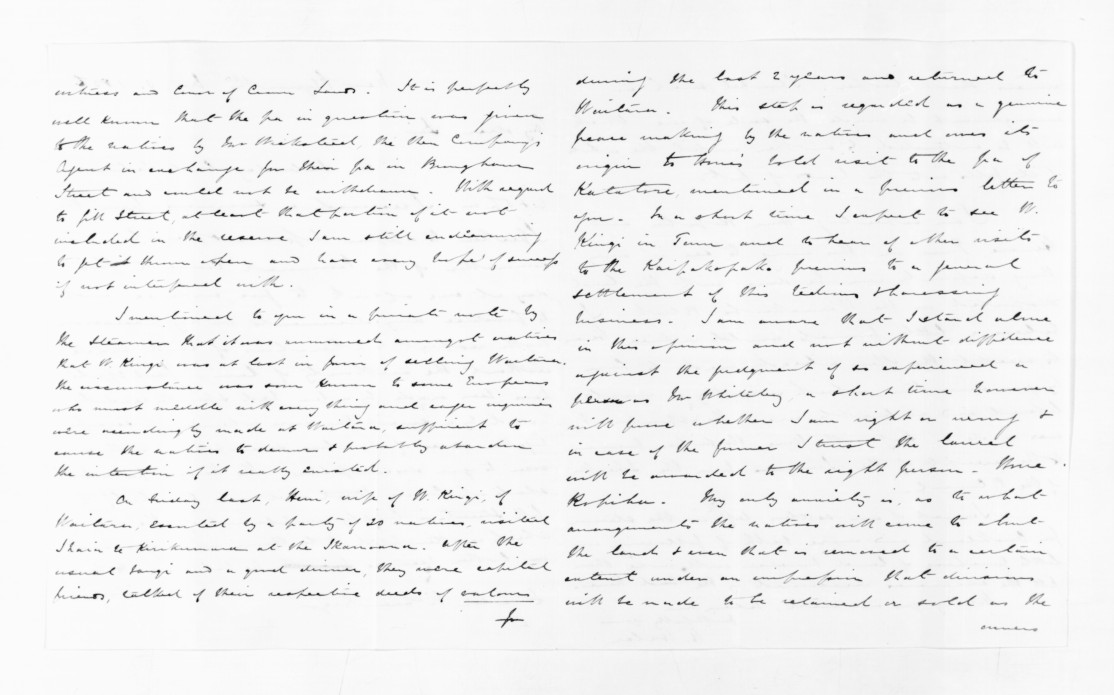 witness and Comr of Crown Lands. It is perfectly
well known that the pa in question was given
to the natives by Mr Wicksteed, the then Company's
Agent in exchange for their pa in Brougham
Street and could not be withdrawn. With regard
to Gill Street, at least that portion of it not
included in the reserve I am still endeavouring
to get them open and have every hope of success
if not interfered with.
I mentioned to you in a private note by
the Steamer that it was rumoured amongst natives
that W. Kingi was at last in favor of selling Waitara.
the circumstance was soon known to some Europeans
who must meddle with every thing and eager inquiries
were accordingly made at Waitara, sufficient to
cause the natives to demur & probably abandon
the intention if it really existed.
On Friday last, Heni, wife of W. Kingi, of
Waitara, escorted by a party of 20 natives, visited
Ihaia te Kirikumara at the Ikamoana. After the
usual tangi and a good dinner, they were capital
friends, talked of their respective deeds of valour
during the last 2 years and returned to
Waitara. This step is regarded as a genuine
peace making by the natives and owes its
origin to Hone's bold visit to the pa of
Katatore, mentioned in a previous letter to
you. In a short time I expect to see W.
Kingi in Town and to hear of other visits
to the Kaipakopako previous to a general
settlement of this tedious & harassing
business. I am aware that I stand alone
in this opinion and not without diffidence
against the judgment of so experienced a
person as Mr Whiteley, a short time however
will prove whether I am right or wrong &
in case of the former I trust the laurel
will be awarded to the right person - Hone
Ropiha. My only anxiety is, as to what
arrangements the natives will come to about
the land & even that is removed to a certain
extent under an impression that divisions
will be made to be retained or sold as the
owners